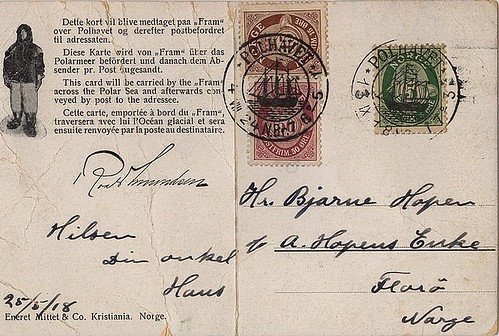 Dette kort vil blive medtaget paa „Fram"
over Polhavet og derefter postbefordret
til adressaten.
Diese Karte wird von „Fram" über das
Polarmeer befördert und danach dem Ab-
sender pr. Post zugesandt.
This card will be carried by the „Fram"
across the Polar Sea and afterwards con-
veyed by post to the addressee.
Cette carte, emportée à bord du „Fram",
traversera avec lui l'Océan glacial et sera
ensuite renvoyée par la poste au destinataire.
Roald Amundsen
Hilsen
Din onkel
Hans
25/5/18
Eneret Mittet & Co. Kristiania. Norge.
POLHAVET
NORGE
POLHAVET
Hr. Bjarne Hopen
A. Hopens Enke
Florø
Norge